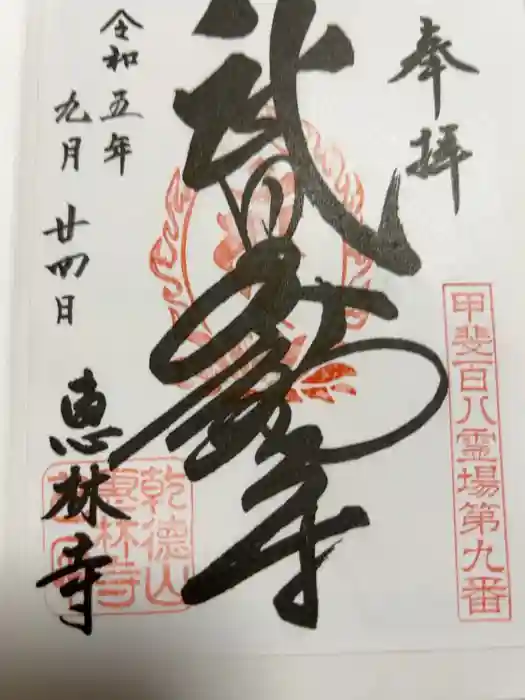 奉拝
甲斐百八霊場第九番
武田不動尊
令和五年
九月廿四日
恵林寺
乾徳山
恵林寺